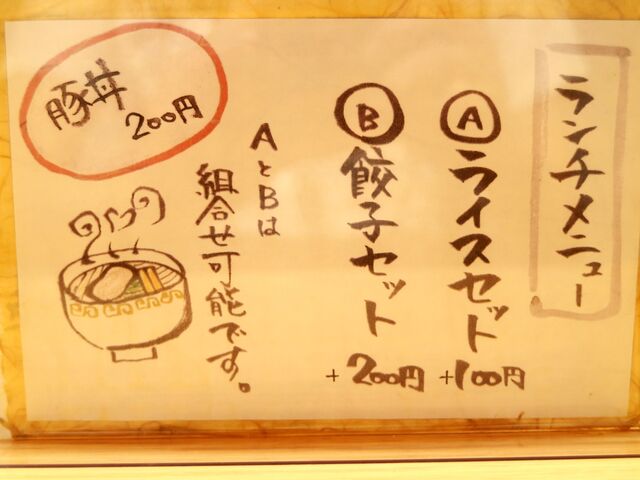 ランチメニュー
Ⓐライスセット+100円
Ⓑ餃子セット+200円
AとBは
組合せ可能です。
豚丼
200円